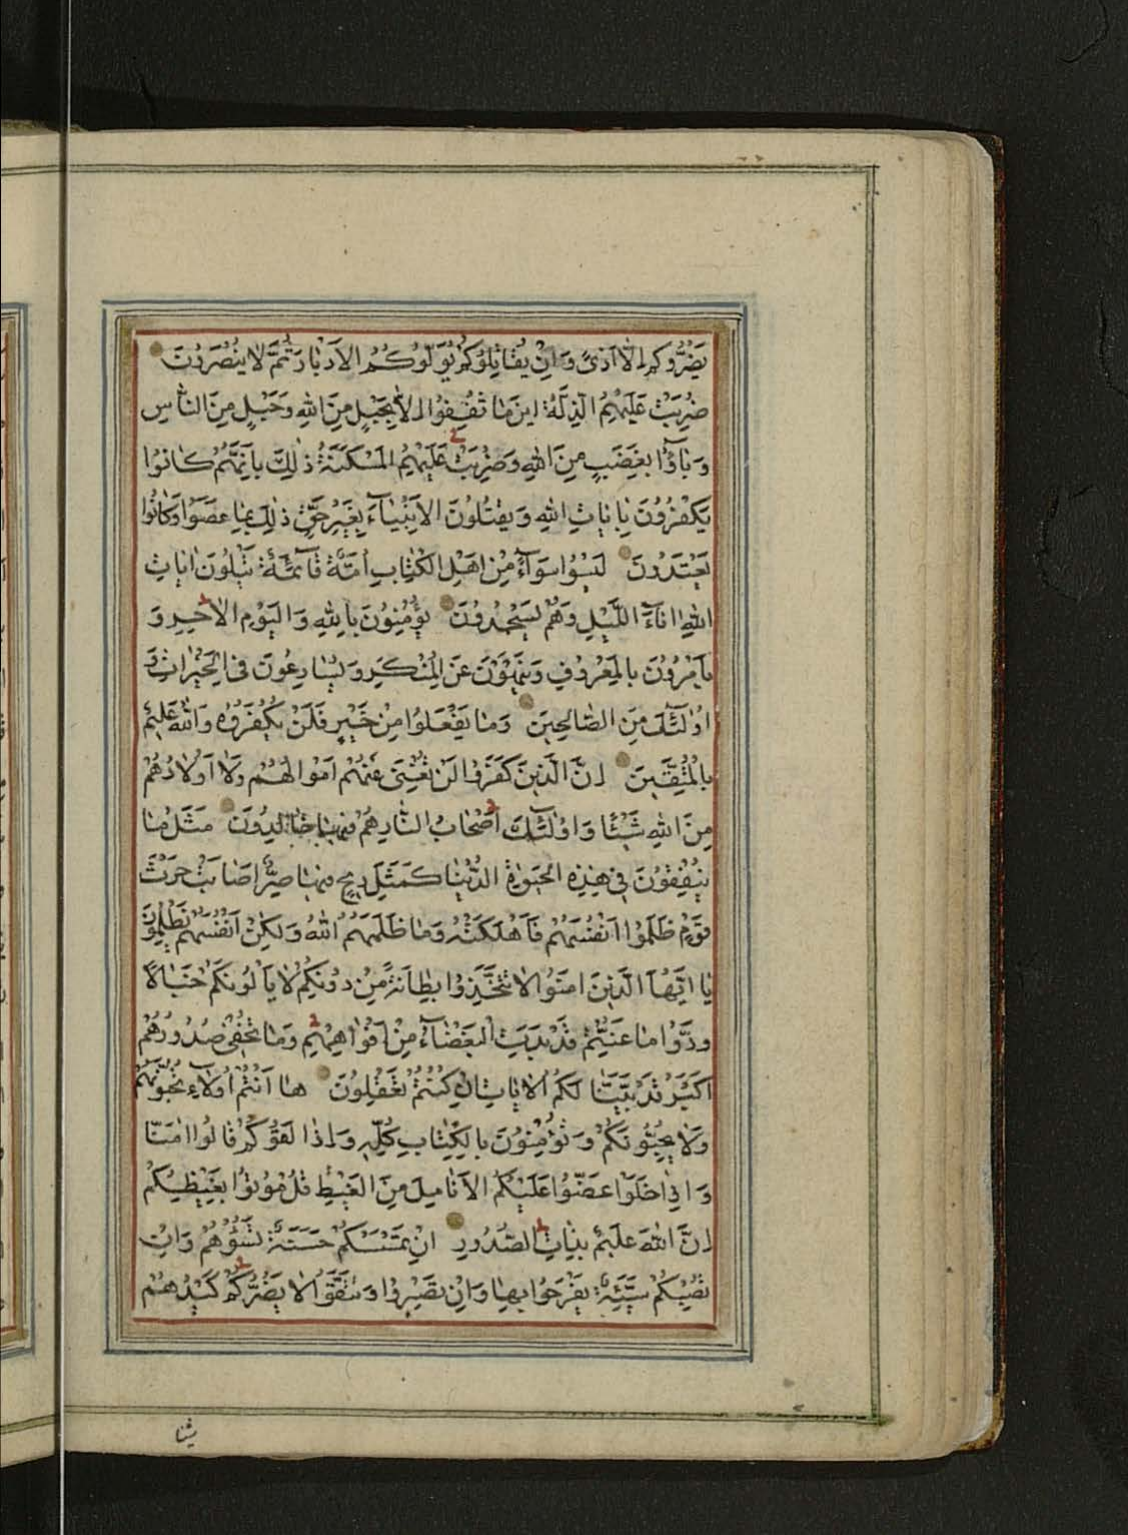 يَضُرُّوكُمْ اِلّٰا اَذًى وَاِنْ يُقٰاتِلُوكُمْ يُوَلُّوكُمُ الْاَدْبٰارَ ثُمَّ لٰا يُنْصَرُونَ
ضُرِبَتْ عَلَيْهِمُ الذِّلَّةُ اَيْنَ مٰا ثُقِفُوا اِلّٰا بِحَبْلٍ مِنَ اللّٰهِ وَحَبْلٍ مِنَ النّٰاسِ
وَبٰآؤُا بِغَضَبٍ مِنَ اللّٰهِ وَضُرِبَتْ عَلَيْهِمُ الْمَسْكَنَةُ ذٰلِكَ بِاَنَّهُمْ كٰانُوا
يَكْفُرُونَ بِاٰيٰاتِ اللّٰهِ وَيَقْتُلُونَ الْاَنْبِيٰآءَ بِغَيْرِ حَقٍّ ذٰلِكَ بِمٰا عَصَوْا وَكٰانُوا
يَعْتَدُونَ لَيْسُوا سَوٰآءً مِنْ اَهْلِ الْكِتٰابِ اُمَّةٌ قٰآئِمَةٌ يَتْلُونَ اٰيٰاتِ
اللّٰهِ اٰنٰآءَ اللَّيْلِ وَهُمْ يَسْجُدُونَ يُؤْمِنُونَ بِاللّٰهِ وَالْيَوْمِ الْاٰخِرِ وَ
يَأْمُرُونَ بِالْمَعْرُوفِ وَيَنْهَوْنَ عَنِ الْمُنْكَرِ وَيُسٰارِعُونَ فِى الْخَيْرٰاتِ وَ
اُولٰٓئِكَ مِنَ الصّٰالِحِينَ وَمٰا يَفْعَلُوا مِنْ خَيْرٍ فَلَنْ يُكْفَرُوهُ وَاللّٰهُ عَلِيمٌ
بِالْمُتَّقِينَ اِنَّ الَّذِينَ كَفَرُوا لَنْ تُغْنِىَ عَنْهُمْ اَمْوٰالُهُمْ وَلٰا اَوْلٰادُهُمْ
مِنَ اللّٰهِ شَيْئًا وَاُولٰٓئِكَ اَصْحٰابُ النّٰارِ هُمْ فِيهٰا خٰالِدُونَ مَثَلُ مٰا
يُنْفِقُونَ فِى هٰذِهِ الْحَيٰوةِ الدُّنْيٰا كَمَثَلِ رِيحٍ فِيهٰا صِرٌّ اَصٰابَتْ حَرْثَ
قَوْمٍ ظَلَمُوا اَنْفُسَهُمْ فَاَهْلَكَتْهُ وَمٰا ظَلَمَهُمُ اللّٰهُ وَلٰكِنْ اَنْفُسَهُمْ يَظْلِمُونَ
يٰا اَيُّهَا الَّذِينَ اٰمَنُوا لٰا تَتَّخِذُوا بِطٰانَةً مِنْ دُونِكُمْ لٰا يَأْلُونَكُمْ خَبٰالًا
وَدُّوا مٰا عَنِتُّمْ قَدْ بَدَتِ الْبَغْضٰآءُ مِنْ اَفْوٰاهِهِمْ وَمٰا تُخْفِى صُدُورُهُمْ
اَكْبَرُ قَدْ بَيَّنّٰا لَكُمُ الْاٰيٰاتِ اِنْ كُنْتُمْ تَعْقِلُونَ هٰا اَنْتُمْ اُولٰآءِ تُحِبُّونَهُمْ
وَلٰا يُحِبُّونَكُمْ وَتُؤْمِنُونَ بِالْكِتٰابِ كُلِّهِ وَاِذٰا لَقُوكُمْ قٰالُوا اٰمَنّٰا
وَاِذٰا خَلَوْا عَضُّوا عَلَيْكُمُ الْاَنٰامِلَ مِنَ الْغَيْظِ قُلْ مُوتُوا بِغَيْظِكُمْ
اِنَّ اللّٰهَ عَلِيمٌ بِذٰاتِ الصُّدُورِ اِنْ تَمْسَسْكُمْ حَسَنَةٌ تَسُؤْهُمْ وَاِنْ
تُصِبْكُمْ سَيِّئَةٌ يَفْرَحُوا بِهٰا وَاِنْ تَصْبِرُوا وَتَتَّقُوا لٰا يَضُرُّكُمْ كَيْدُهُمْ
شيئا